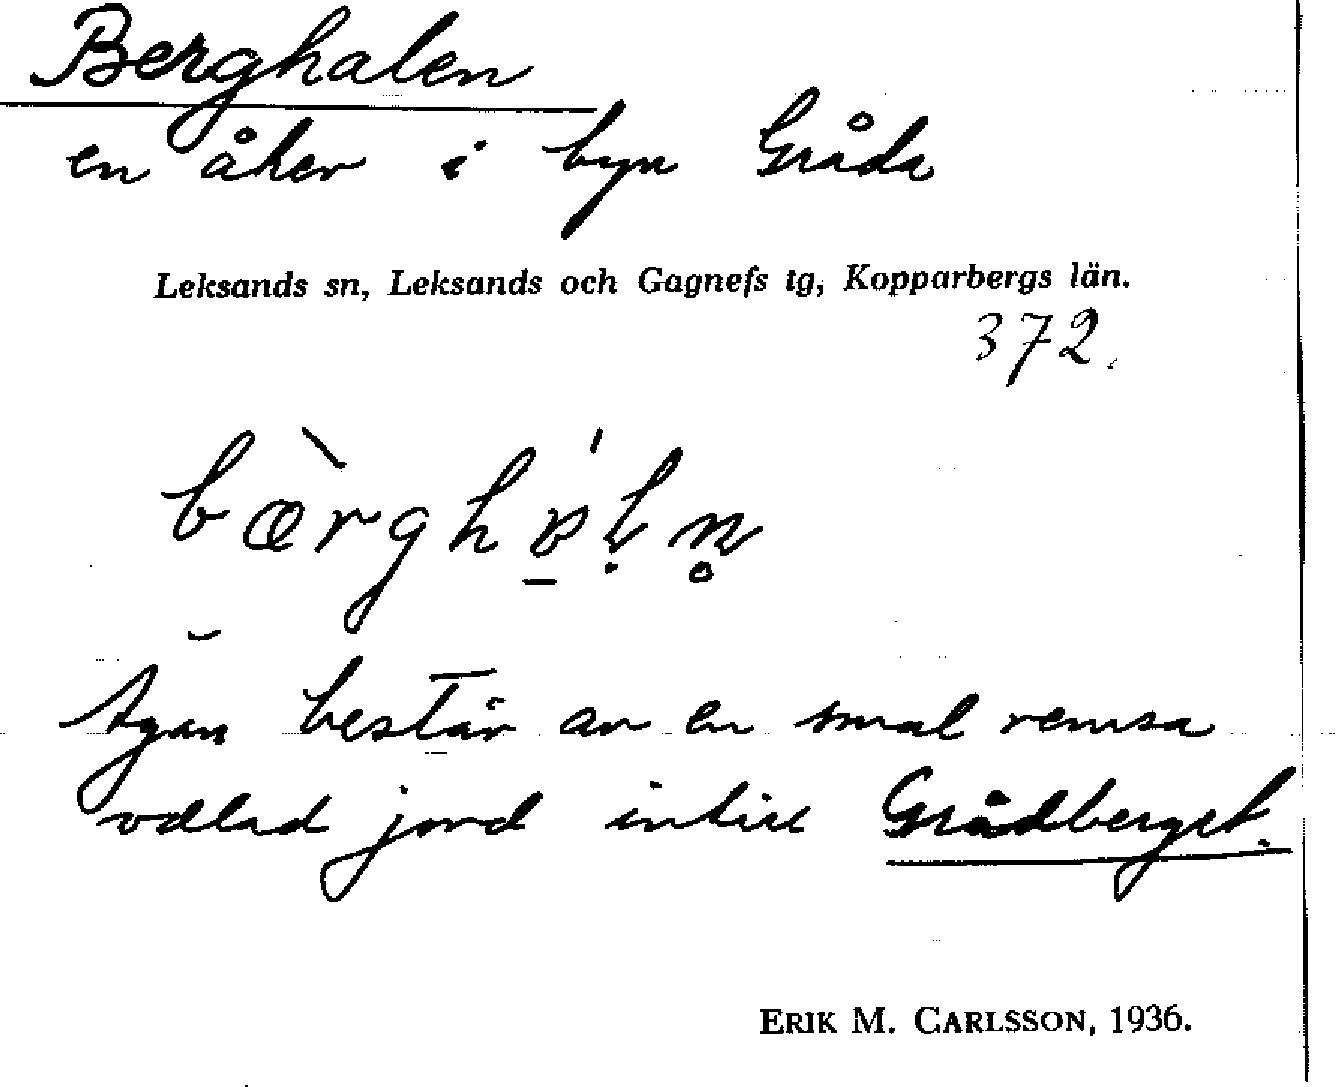 Berghalen
en åker i byn Gråda
Leksands sn, Leksands och Gagnefs tg, Kopparbergs län.
372.
bærghɒḷn̥
Ägan består av en smal remsa
odlad jord intill Grådberget.
ERIK M. CARLSSON, 1936.